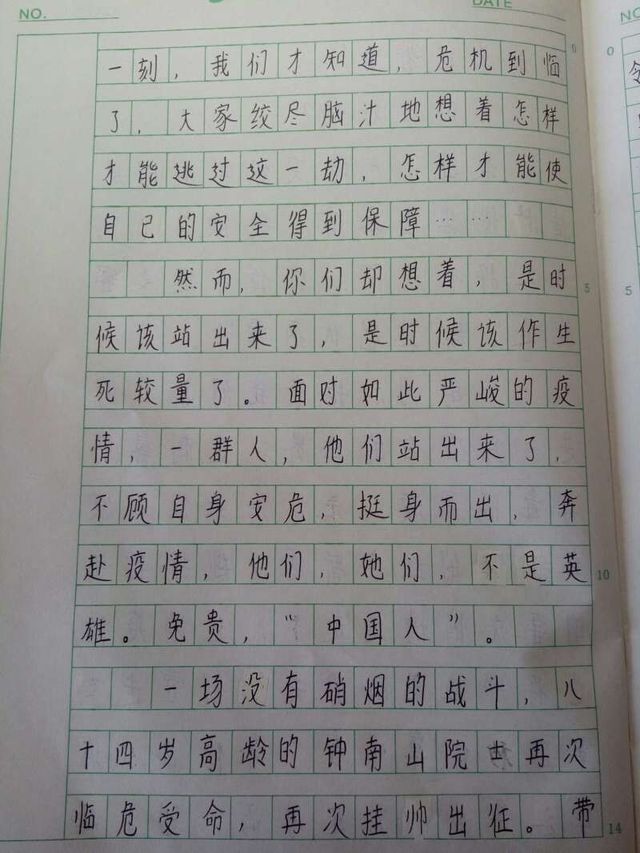 NO.
DATE
NO
一刻，我们才知道，危机到临
了，大家绞尽脑汁地想着怎样
才能逃过这一劫，怎样才能使
自己的安全得到保障……
然而，你们却想着，是时
候该站出来了，是时候该作生
死较量了。面对如此严峻的疫
情，一群人，他们站出来了，
不顾自身安危，挺身而出，奔
赴疫情，他们，她们，不是英
雄。免贵，“中国人”。
一场没有硝烟的战斗，八
十四岁高龄的钟南山院士再次
临危受命，再次挂帅出征。带
5
10
14
0
5